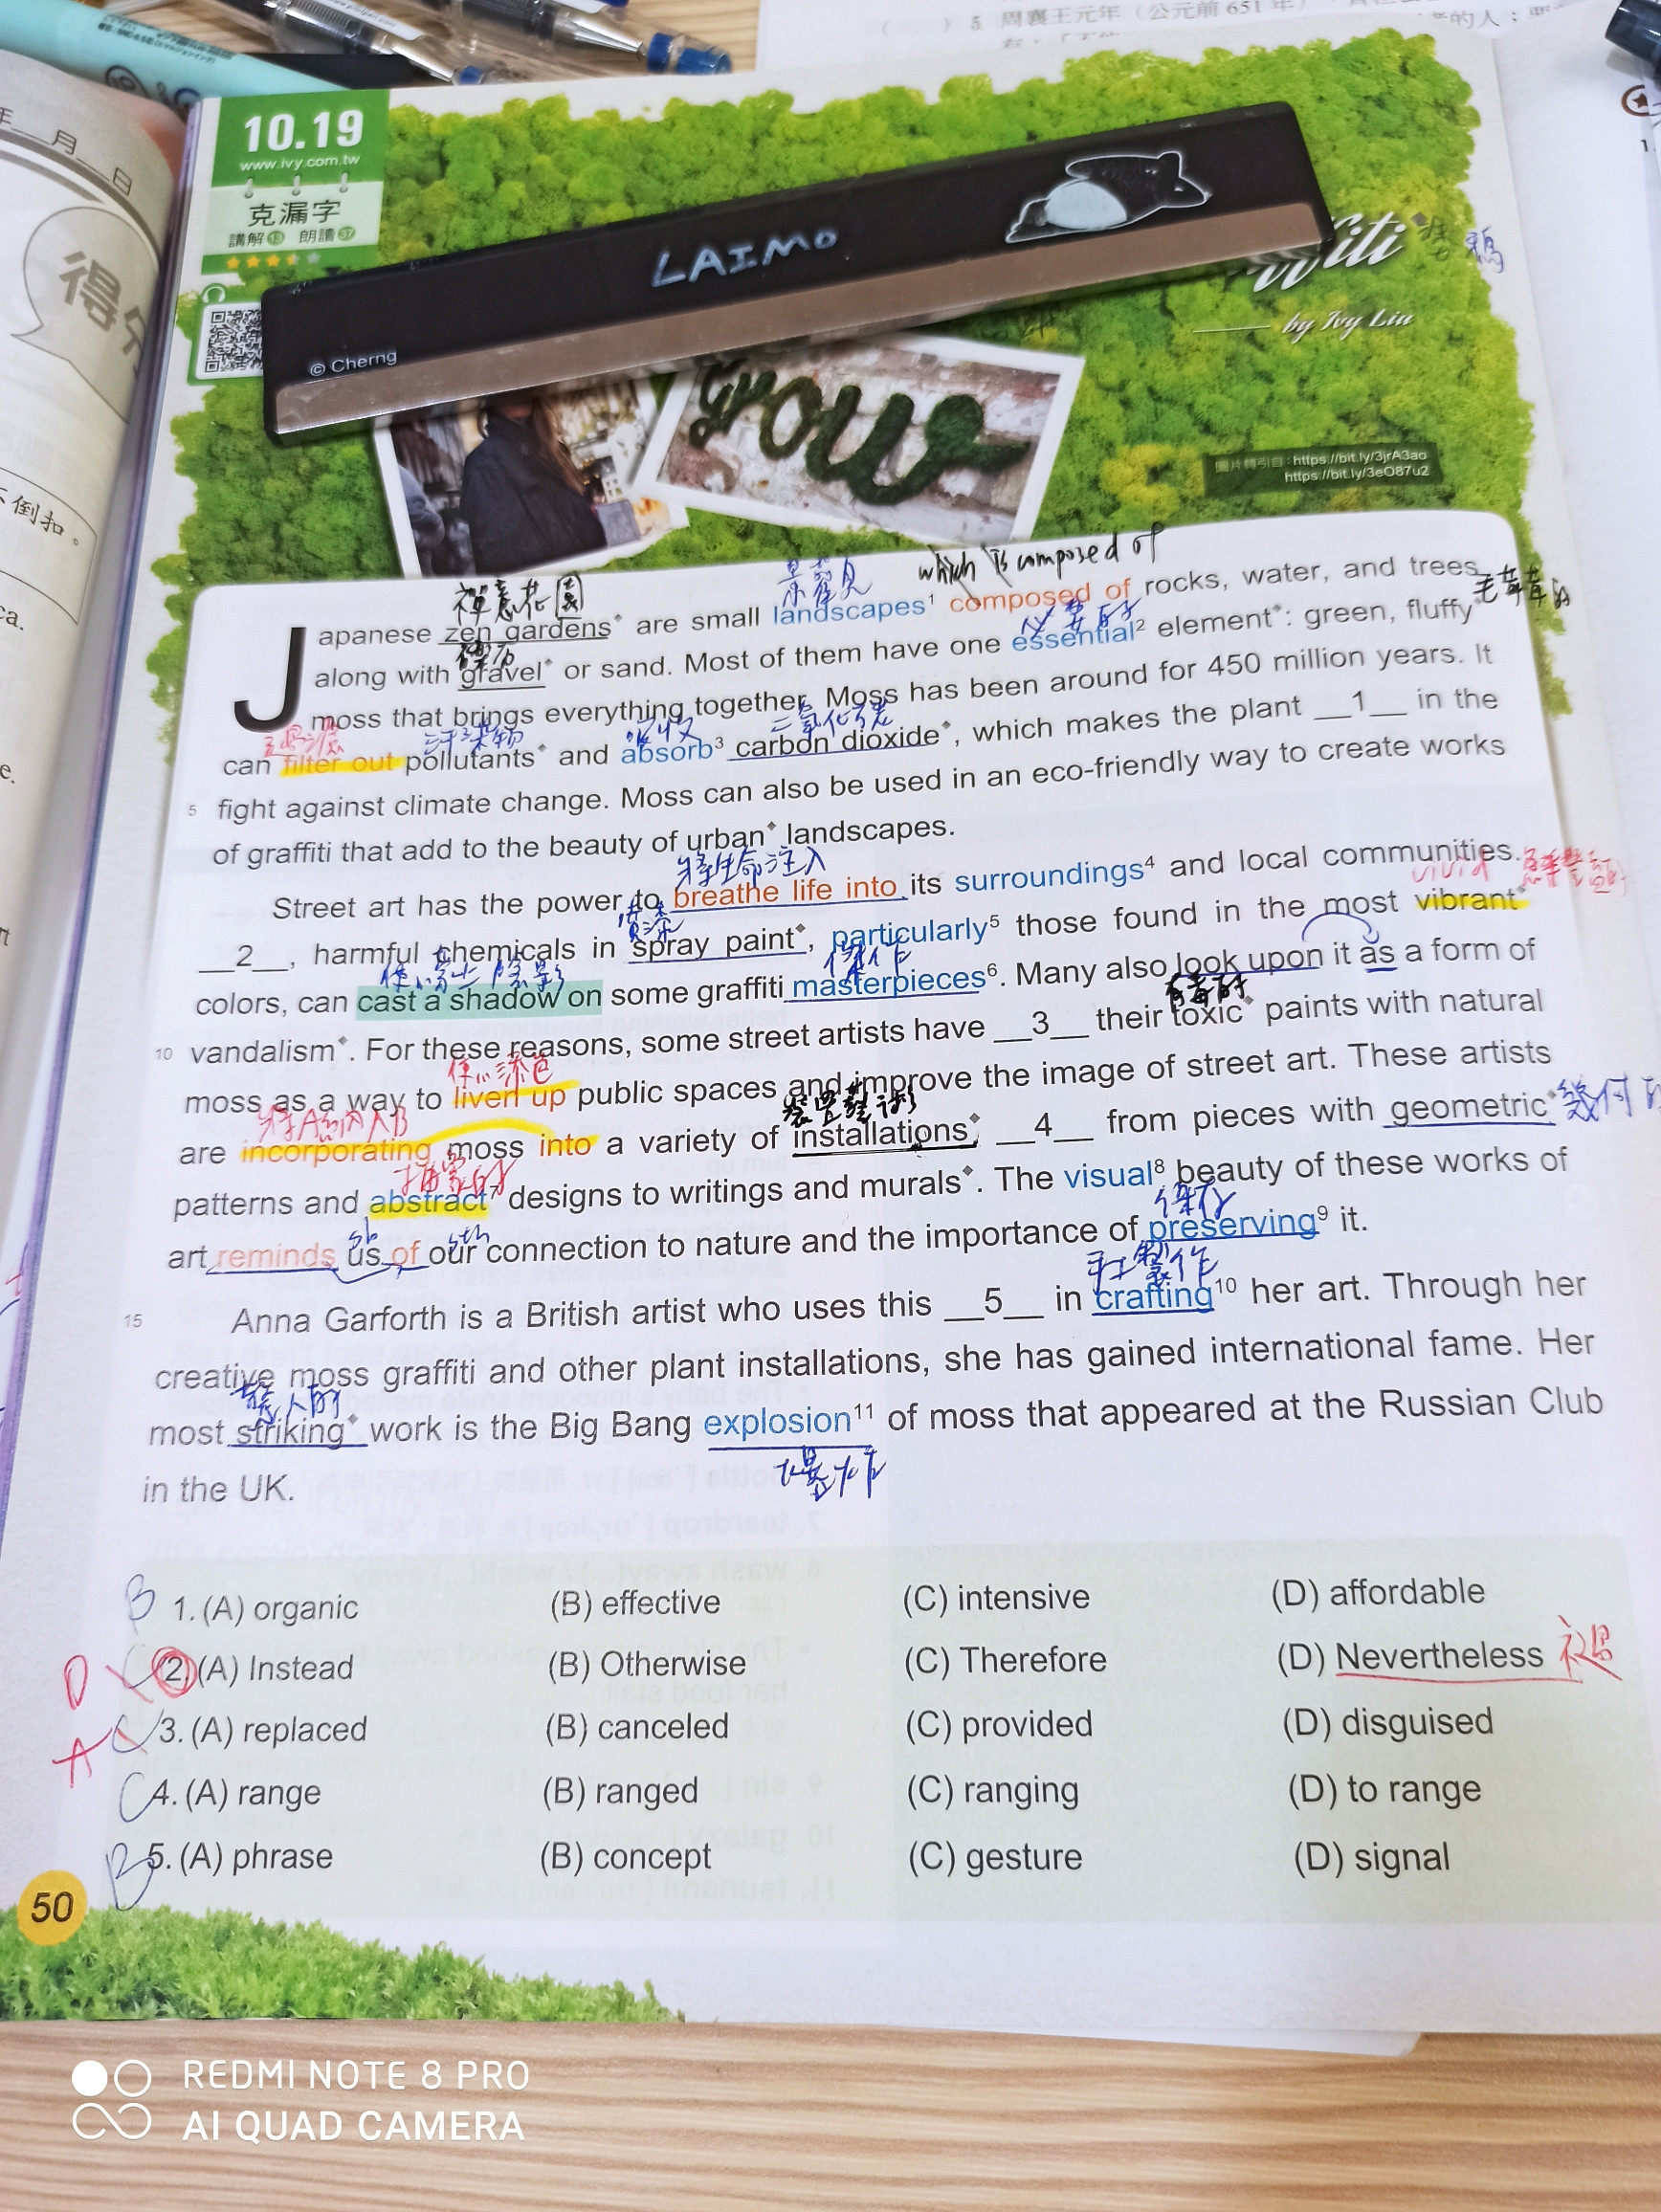 5 周襄王元年（公元前651年）
的人；
年 月 日
得分
倒扣。
ca.
e.
10.19
www.ivy.com.tw
克漏字
講解 13 朗讀 37
LAIMO
© Cherng
by Ivy Liu
grow
圖片轉引自：https://bit.ly/3jrA3ao
https://bit.ly/3eO87u2
禪意花園 which is composed of
Japanese zen gardens are small landscapes¹ composed of rocks, water, and trees
礫石 必要的 毛茸茸的
along with gravel or sand. Most of them have one essential² element: green, fluffy
moss that brings everything together. Moss has been around for 450 million years. It
過濾 汙染物 吸收 二氧化碳
can filter out pollutants and absorb³ carbon dioxide, which makes the plant __1__ in the
5 fight against climate change. Moss can also be used in an eco-friendly way to create works
of graffiti that add to the beauty of urban landscapes.
將生命注入
Street art has the power to breathe life into its surroundings⁴ and local communities.
噴漆 vivid
__2__, harmful chemicals in spray paint, particularly⁵ those found in the most vibrant
使蒙上陰影 傑作
colors, can cast a shadow on some graffiti masterpieces⁶. Many also look upon it as a form of
有毒的
10 vandalism. For these reasons, some street artists have __3__ their toxic paints with natural
使添色
moss as a way to liven up public spaces and improve the image of street art. These artists
將A納入B 裝置藝術 幾何的
are incorporating moss into a variety of installations, __4__ from pieces with geometric
抽象的
patterns and abstract⁷ designs to writings and murals. The visual⁸ beauty of these works of
sb sth 保存
art reminds us of our connection to nature and the importance of preserving⁹ it.
手工製作
15 Anna Garforth is a British artist who uses this __5__ in crafting¹⁰ her art. Through her
creative moss graffiti and other plant installations, she has gained international fame. Her
驚人的
most striking work is the Big Bang explosion¹¹ of moss that appeared at the Russian Club
爆炸
in the UK.
B 1. (A) organic (B) effective (C) intensive (D) affordable
D 2. (A) Instead (B) Otherwise (C) Therefore (D) Nevertheless
A C 3. (A) replaced (B) canceled (C) provided (D) disguised
C 4. (A) range (B) ranged (C) ranging (D) to range
B 5. (A) phrase (B) concept (C) gesture (D) signal
50
REDMI NOTE 8 PRO
AI QUAD CAMERA